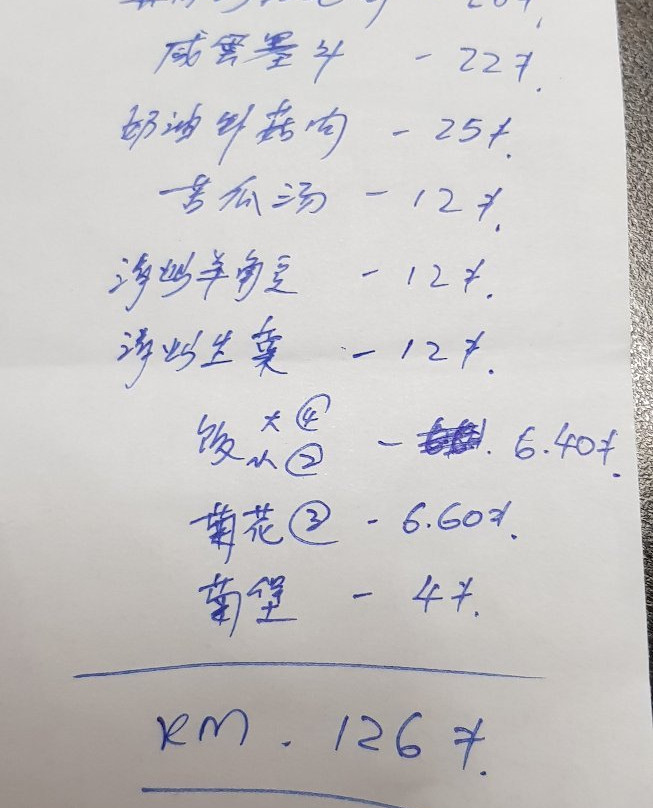 咸蛋墨斗 - 22.
奶油虾菇肉 - 25.
苦瓜汤 - 12.
清炒羊角豆 - 12.
清炒生菜 - 12.
饭 大④ 小② - 6.40.
菊花③ - 6.60.
菊堡 - 4.
RM. 126.